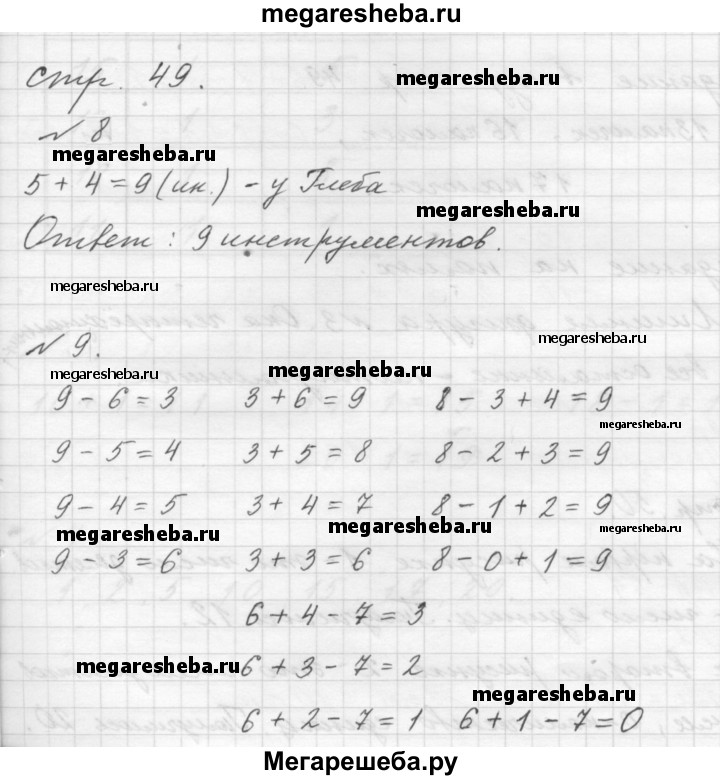 megaresheba.ru
стр. 49.
megaresheba.ru
№ 8
megaresheba.ru
5 + 4 = 9 (ин.) - у Глеба
megaresheba.ru
Ответ : 9 инструментов.
megaresheba.ru
№ 9.
megaresheba.ru
megaresheba.ru
megaresheba.ru
9 - 6 = 3 3 + 6 = 9 8 - 3 + 4 = 9
megaresheba.ru
9 - 5 = 4 3 + 5 = 8 8 - 2 + 3 = 9
9 - 4 = 5 3 + 4 = 7 8 - 1 + 2 = 9
megaresheba.ru
megaresheba.ru
megaresheba.ru
9 - 3 = 6 3 + 3 = 6 8 - 0 + 1 = 9
6 + 4 - 7 = 3
megaresheba.ru
6 + 3 - 7 = 2
megaresheba.ru
6 + 2 - 7 = 1 6 + 1 - 7 = 0
Мегарешеба.ру